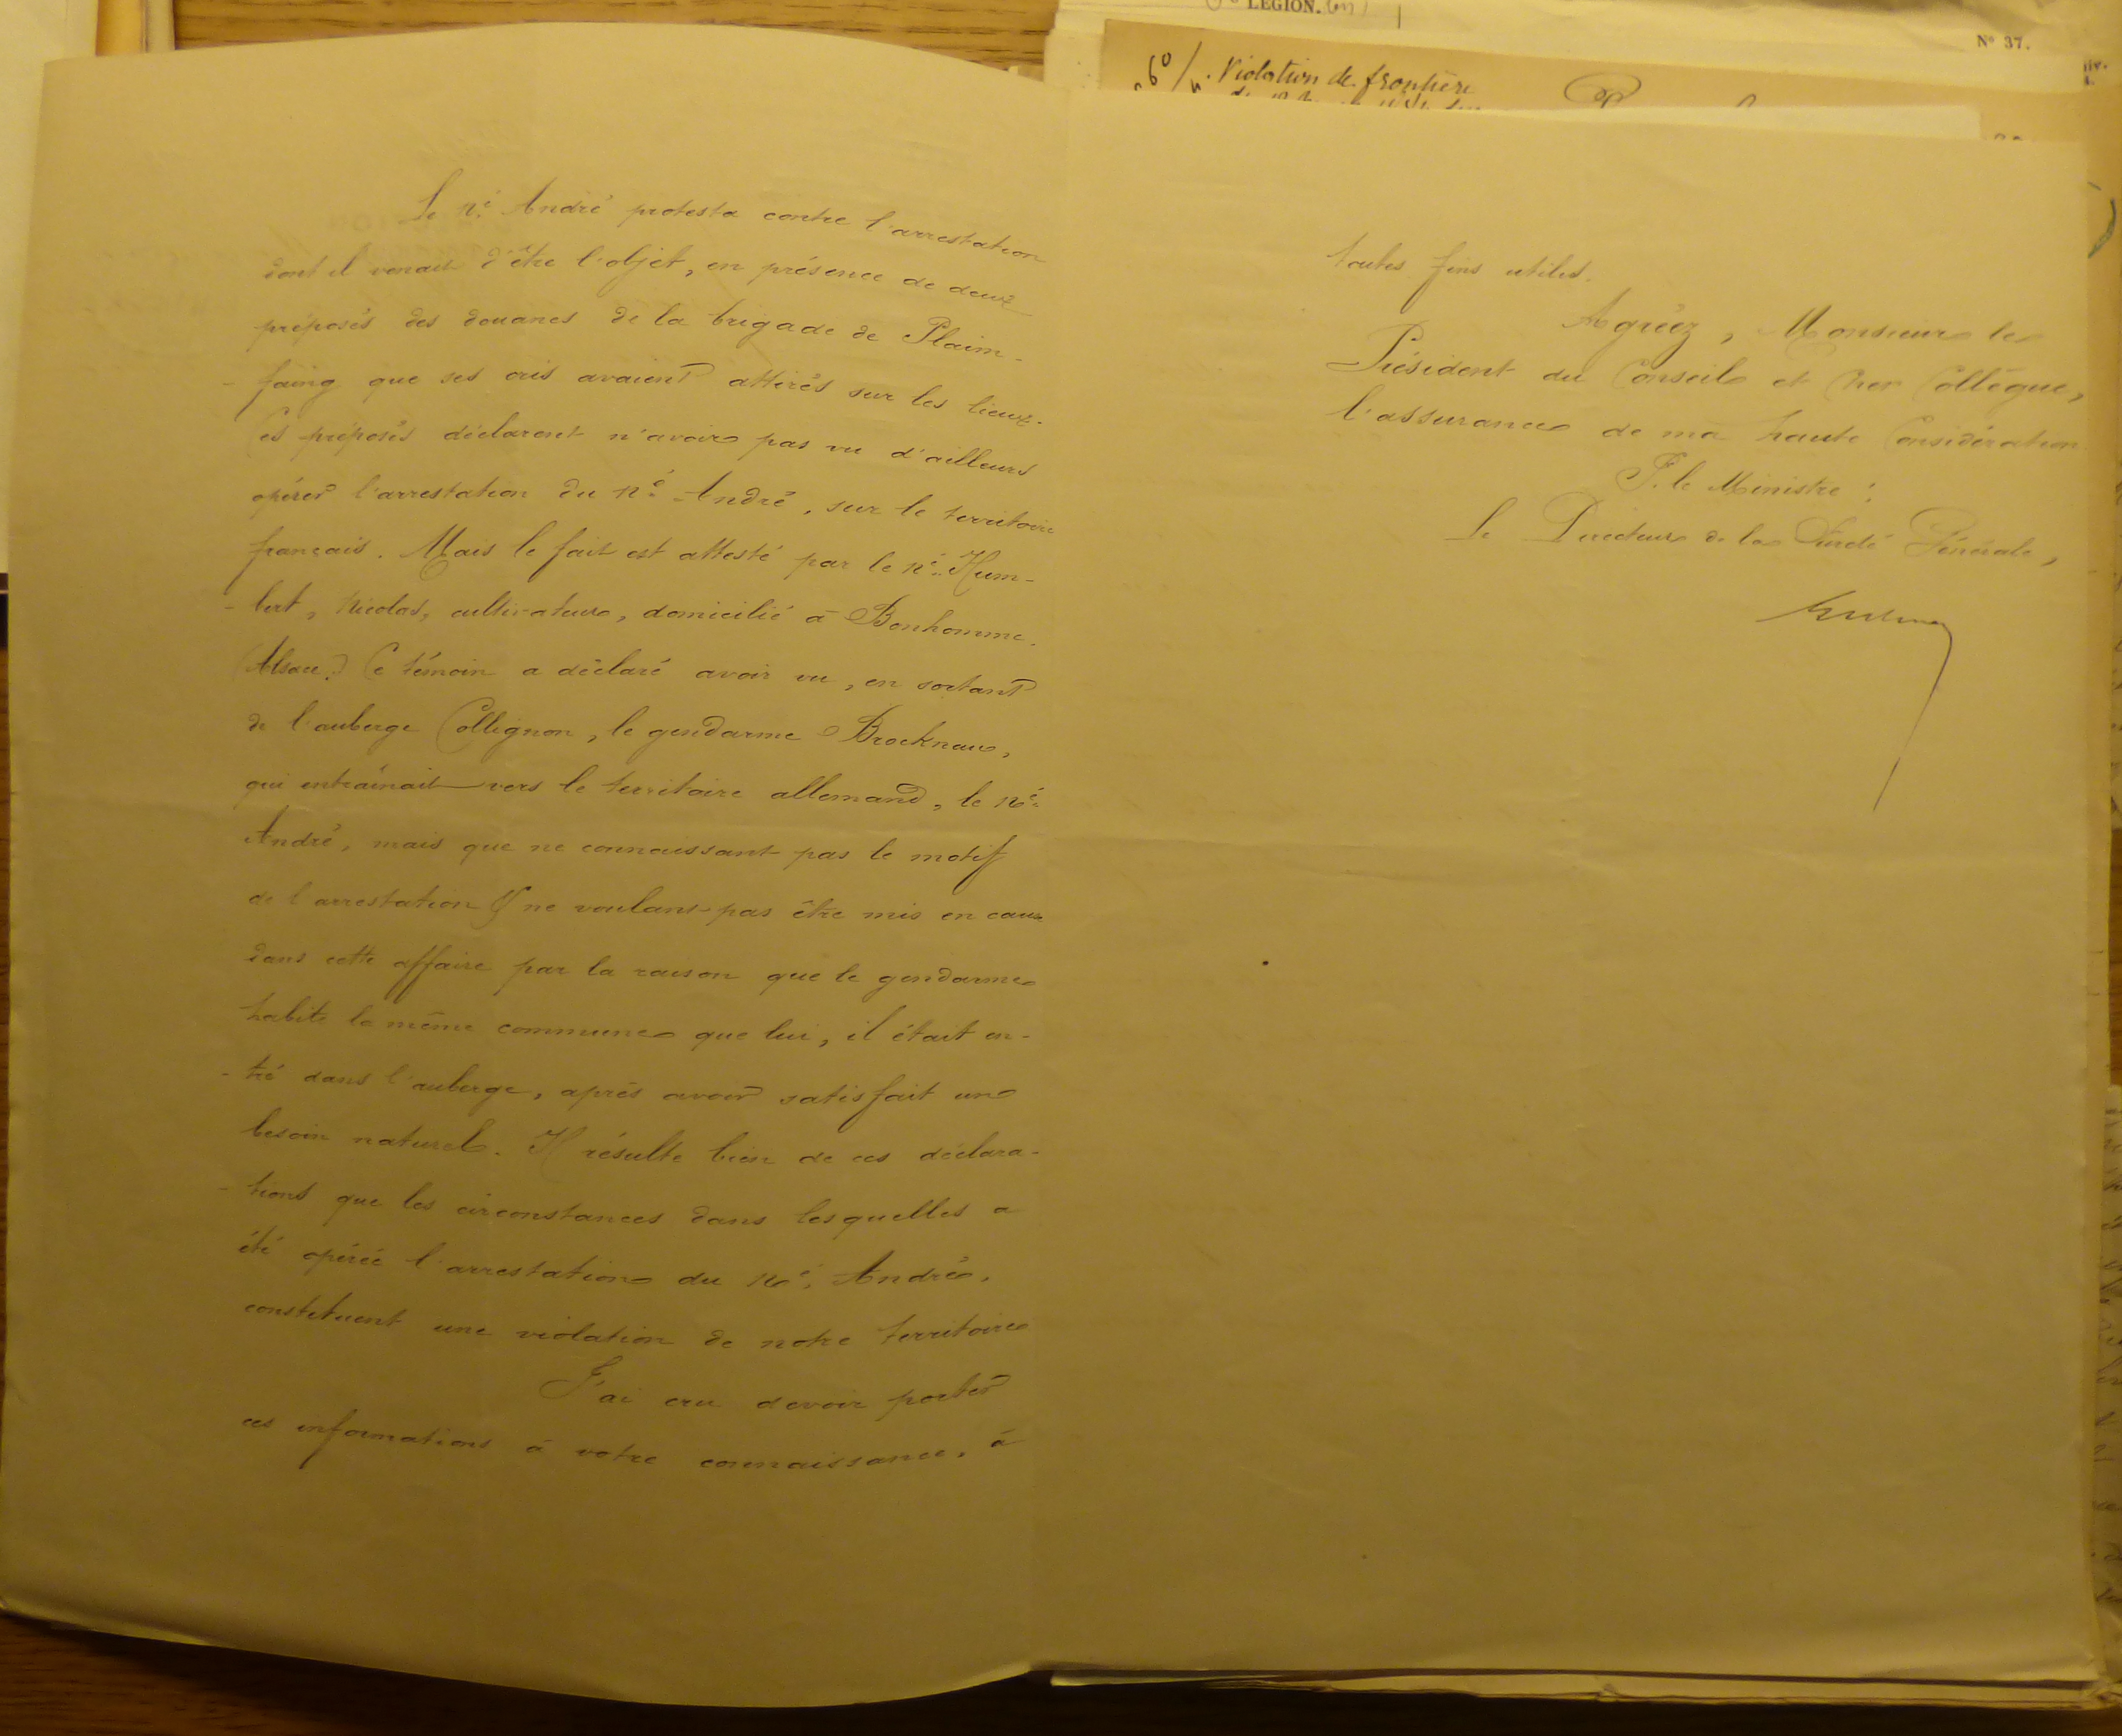 Le né André protesta contre l'arrestation
dont il venait d'être l'objet, en présence de deux
préposés des douanes de la brigade de Plain-
- faing que ses cris avaient attirés sur les lieux.
Ces préposés déclarent n'avoir pas vu d'ailleurs
opérer l'arrestation du né André, sur le territoire
français. Mais le fait est attesté par le né Hum-
- bert, Nicolas, cultivateur, domicilié à Bonhomme.
(Alsace.) Ce témoin a déclaré avoir vu, en sortant
de l'auberge Collignon, le gendarme
qui entraînait vers le territoire allemand, le né
André, mais que ne connaissant pas le motif
de l'arrestation & ne voulant pas être mis en cause
dans cette affaire par la raison que le gendarme
habite la même commune que lui, il était en-
- tré dans l'auberge, après avoir satisfait un
besoin naturel. Il résulte bien de ces déclara-
- tions que les circonstances dans lesquelles a
été opérée l'arrestation du né André,
constituent une violation de notre territoire
J'ai cru devoir porter
ces informations à votre connaissance, à
LEGION.
N° 37.
Violation de frontière
toutes fins utiles.
Agréez, Monsieur le
Président du Conseil et Cher Collègue,
l'assurance de ma haute Considération
P. le Ministre :
Le Directeur de la Sûreté Générale,